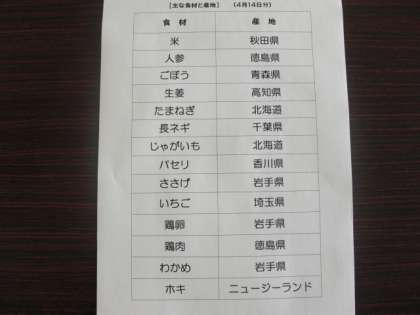 [主な食材と産地] (4月14日分)
食材 産地
米 秋田県
人参 徳島県
ごぼう 青森県
生姜 高知県
たまねぎ 北海道
長ネギ 千葉県
じゃがいも 北海道
パセリ 香川県
ささげ 岩手県
いちご 埼玉県
鶏卵 岩手県
鶏肉 徳島県
わかめ 岩手県
ホキ ニュージーランド